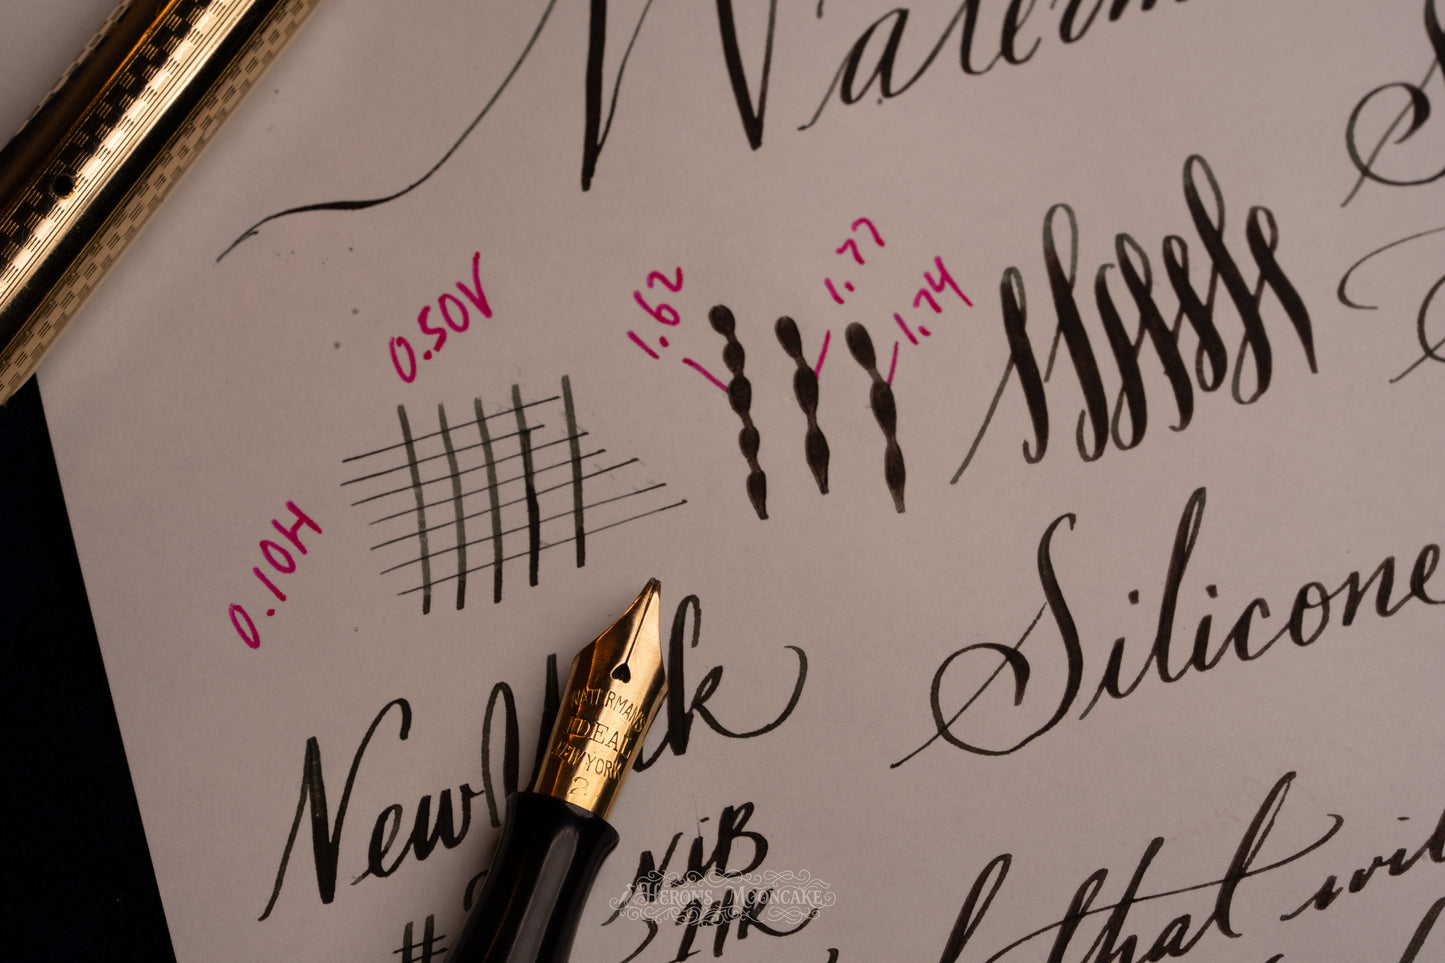 Waterm
0.50V
1.62
1.77
1.74
0.10H
Silicone
New
k
WATERMAN'S
IDEAL
NEW YORK
2
NIB
HERONS MOONCAKE
#
that wil